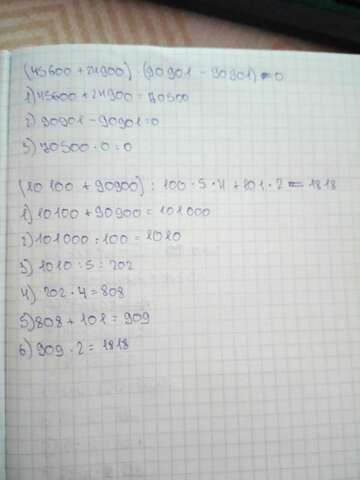 (45600 + 24900) · (90901 - 90901) = 0
1) 45600 + 24900 = 70500
2) 90901 - 90901 = 0
3) 70500 · 0 = 0
(10100 + 90900) : 100 : 5 · 4 + 101 · 2 = 1818
1) 10100 + 90900 = 101000
2) 101000 : 100 = 1010
3) 1010 : 5 = 202
4) 202 · 4 = 808
5) 808 + 101 = 909
6) 909 · 2 = 1818